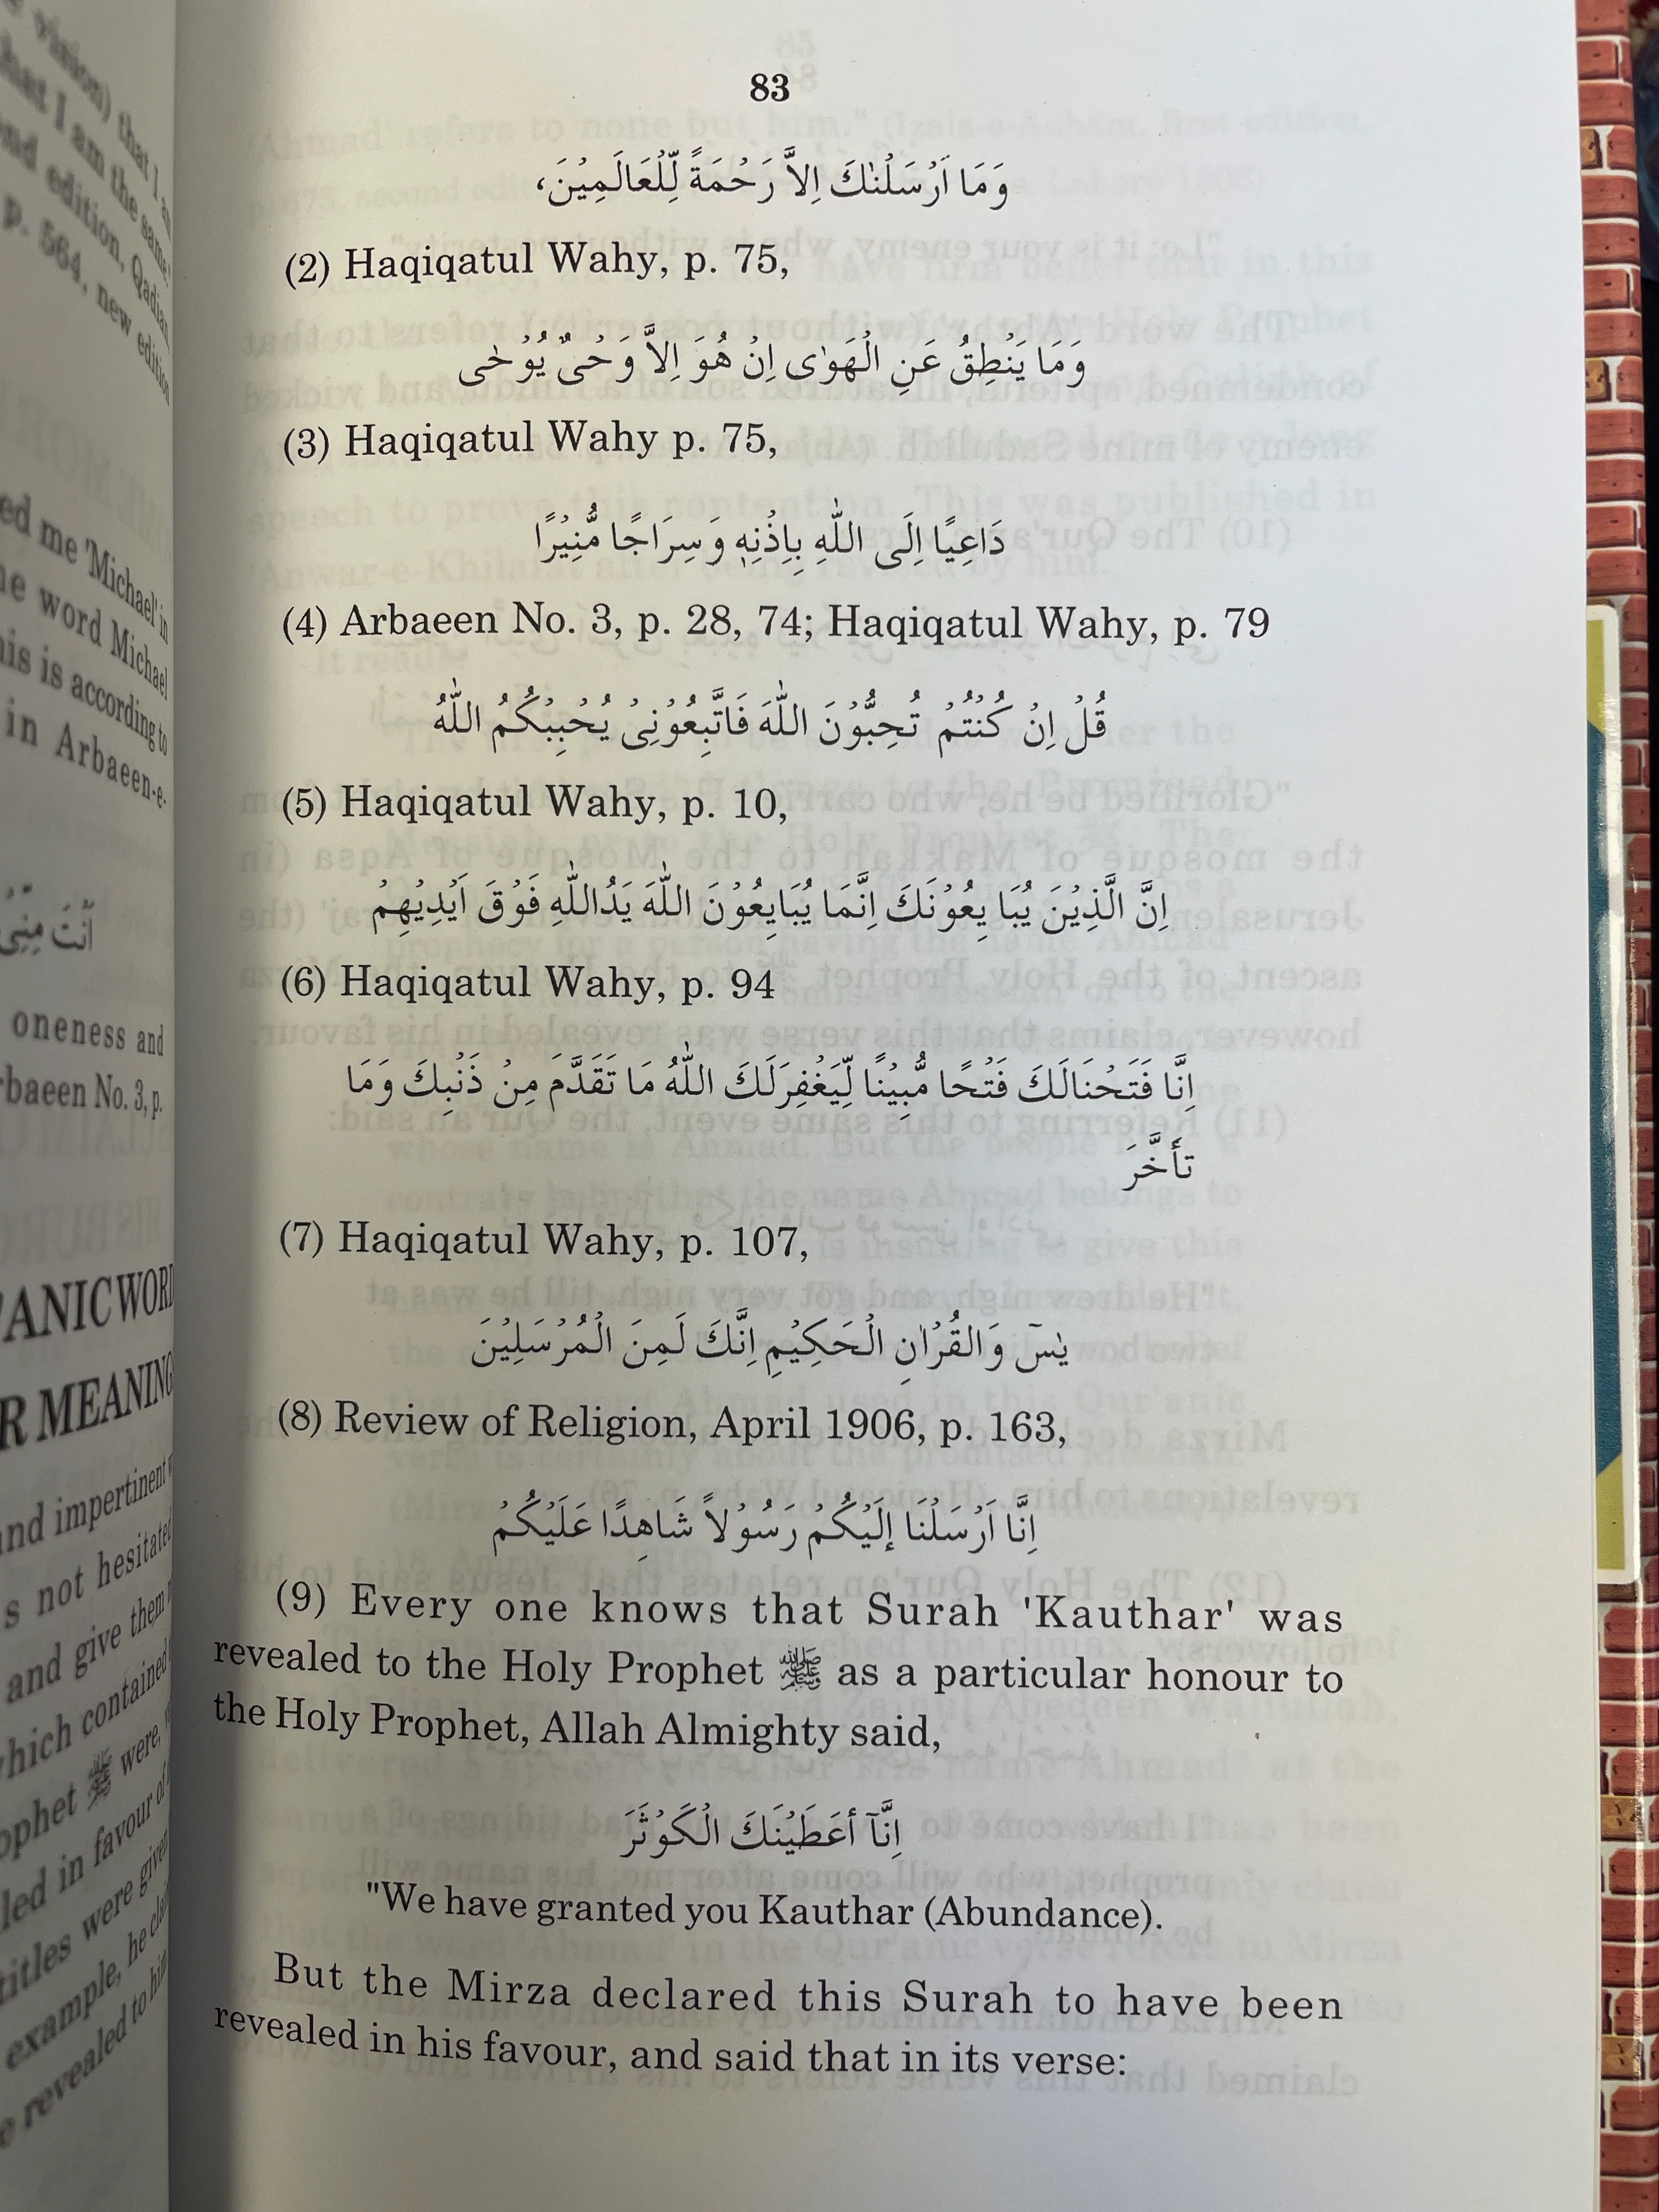 83
وَمَا اَرْسَلْنٰكَ اِلاَّ رَحْمَةً لِّلْعَالَمِيْنَ،
(2) Haqiqatul Wahy, p. 75,
وَمَا يَنْطِقُ عَنِ الْهَوٰى اِنْ هُوَ اِلاَّ وَحْىٌ يُوْحٰى
(3) Haqiqatul Wahy p. 75,
دَاعِيًا اِلَى اللّٰهِ بِاِذْنِهٖ وَسِرَاجًا مُّنِيْرًا
(4) Arbaeen No. 3, p. 28, 74; Haqiqatul Wahy, p. 79
قُلْ اِنْ كُنْتُمْ تُحِبُّوْنَ اللّٰهَ فَاتَّبِعُوْنِىْ يُحْبِبْكُمُ اللّٰهُ
(5) Haqiqatul Wahy, p. 10,
اِنَّ الَّذِيْنَ يُبَا يِعُوْنَكَ اِنَّمَا يُبَايِعُوْنَ اللّٰهَ يَدُاللّٰهِ فَوْقَ اَيْدِيْهِمْ
(6) Haqiqatul Wahy, p. 94
اِنَّا فَتَحْنَالَكَ فَتْحًا مُّبِيْنًا لِّيَغْفِرَلَكَ اللّٰهُ مَا تَقَدَّمَ مِنْ ذَنْبِكَ وَمَا
تأَخَّرَ
(7) Haqiqatul Wahy, p. 107,
يٰسٓ وَالقُرْاٰنِ الْحَكِيْمِ اِنَّكَ لَمِنَ الْمُرْسَلِيْنَ
(8) Review of Religion, April 1906, p. 163,
اِنَّا اَرْسَلْنَا إلَيْكُمْ رَسُوْلاً شَاهِدًا عَلَيْكُمْ
(9) Every one knows that Surah 'Kauthar' was
revealed to the Holy Prophet ﷺ as a particular honour to
the Holy Prophet, Allah Almighty said,
اِنَّآ أعَطَيْنَكَ الْكَوْثَرَ
"We have granted you Kauthar (Abundance).
But the Mirza declared this Surah to have been
revealed in his favour, and said that in its verse: